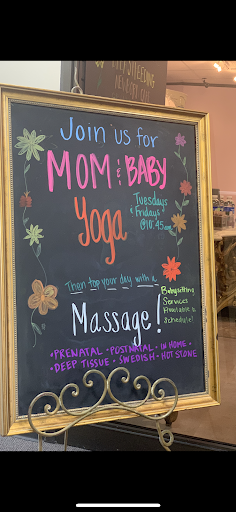 Join us for
MOM & BABY
Yoga
Tuesdays
& Fridays
@10:45am
Then top your day with a
Massage!
Babysitting
Services
Available to
schedule!
• PRENATAL • POSTNATAL • IN HOME •
• DEEP TISSUE • SWEDISH • HOT STONE